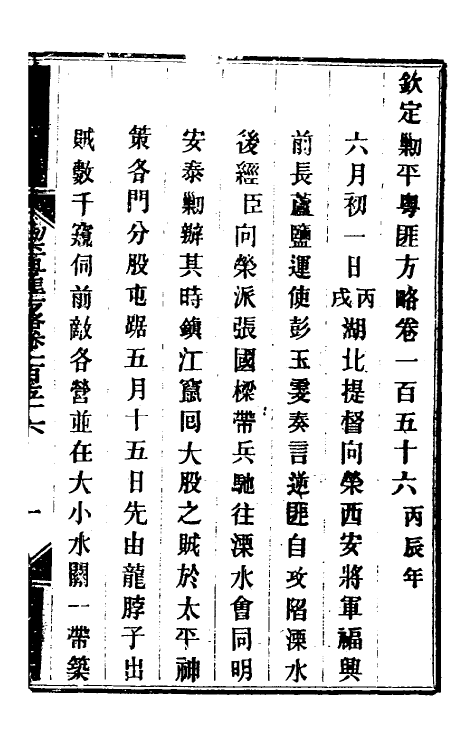 欽定勦平粵匪方略卷一百五十六丙辰年
六月初一日丙戌湖北提督向榮西安將軍福興
前長蘆鹽運使彭玉雯奏言逆匪自攻陷溧水
後經臣向榮派張國樑帶兵馳往溧水會同明
安泰勦辦其時鎮江竄回大股之賊於太平神
策各門分股屯踞五月十五日先由龍脖子出
賊數千窺伺前敵各營並在大小水關一帶築
一